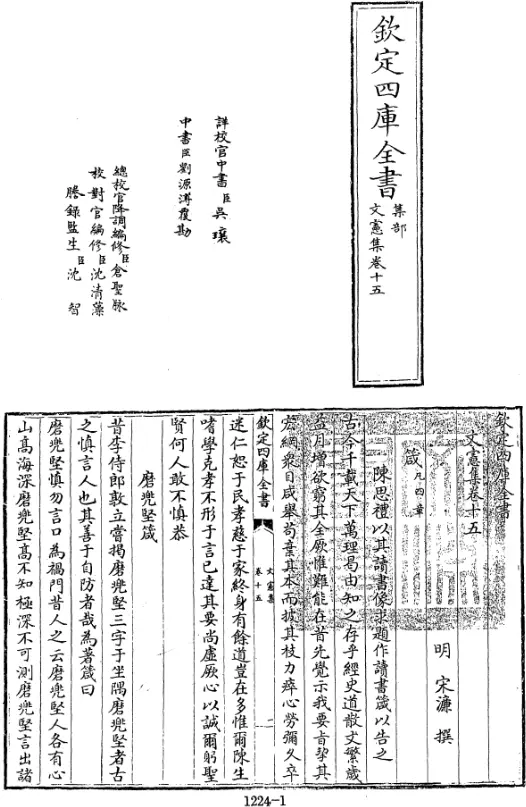 欽定四庫全書
集部
文憲集卷十五
詳校官中書臣吳瓖
中書臣劉源溥覆勘
總校官降調編修臣倉聖脉
校對官編修臣沈清藻
謄錄監生臣沈智
欽定四庫全書
文憲集卷十五
明 宋濂 撰
箴凡四章
陳思禮以其讀書像求題作讀書箴以告之
古今千載天下萬理曷由知之存乎經史道散文繁歲
益月增欲窮其全厥惟難能在昔先覺示我要旨挈其
宏綱衆目咸舉苟棄其本而披其枝力瘁心勞彌久卒
欽定四庫全書
文憲集
卷十五
二
迷仁恕于民孝慈于家終身有餘道豈在多惟爾陳生
嗜學克孝不形于言已達其要尚虛厥心以誠爾躬聖
賢何人敢不慎恭
磨兠堅箴
昔李侍郎敦立嘗揭磨兠堅三字于坐隅磨兠堅者古
之慎言人也其善于自防者哉為著箴曰
磨兠堅慎勿言口為禍門昔人之云磨兠堅人各有心
山高海深磨兠堅高不知極深不可測磨兠堅言出諸
1224-1